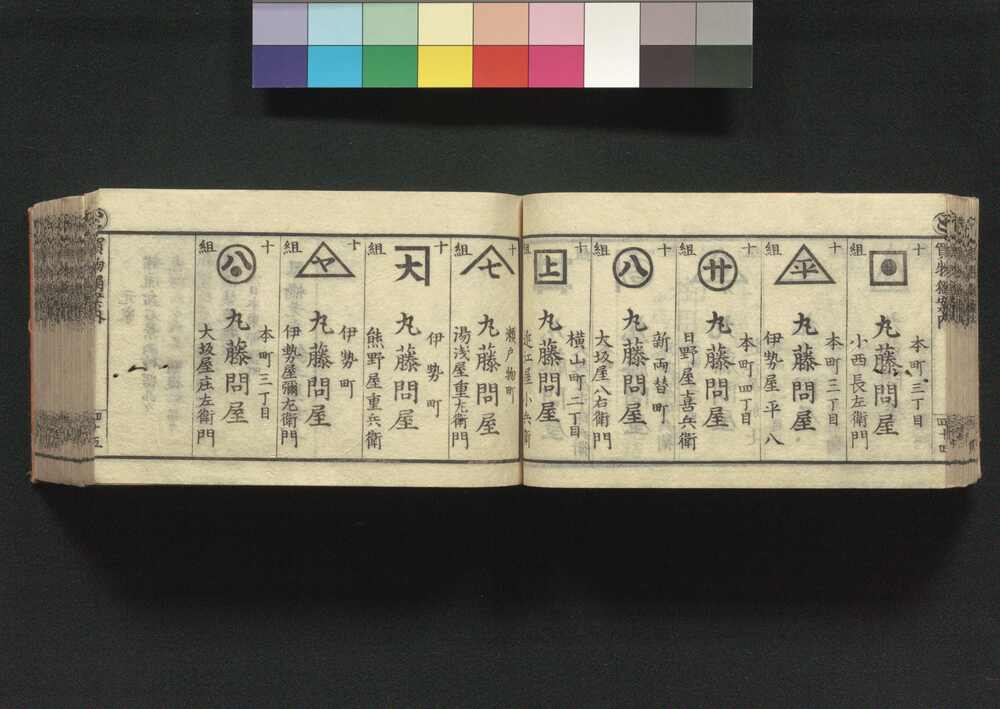 買物獨案内
四十四
十組
本町三丁目
丸藤問屋
小西長左衛門
十組
平
本町三丁目
丸藤問屋
伊勢屋平八
十組
卅
本町四丁目
丸藤問屋
日野屋喜兵衛
十組
八
新両替町
丸藤問屋
大坂屋八右衛門
十組
上
横山町二丁目
丸藤問屋
近江屋小兵衛
十組
七
瀬戸物町
丸藤問屋
湯浅屋重左衛門
十組
大
伊勢町
丸藤問屋
熊野屋重兵衛
十組
ヤ
伊勢町
丸藤問屋
伊勢屋彌兵衛門
十組
八
本町三丁目
丸藤問屋
大坂屋庄左衛門
買物獨案内
四十五